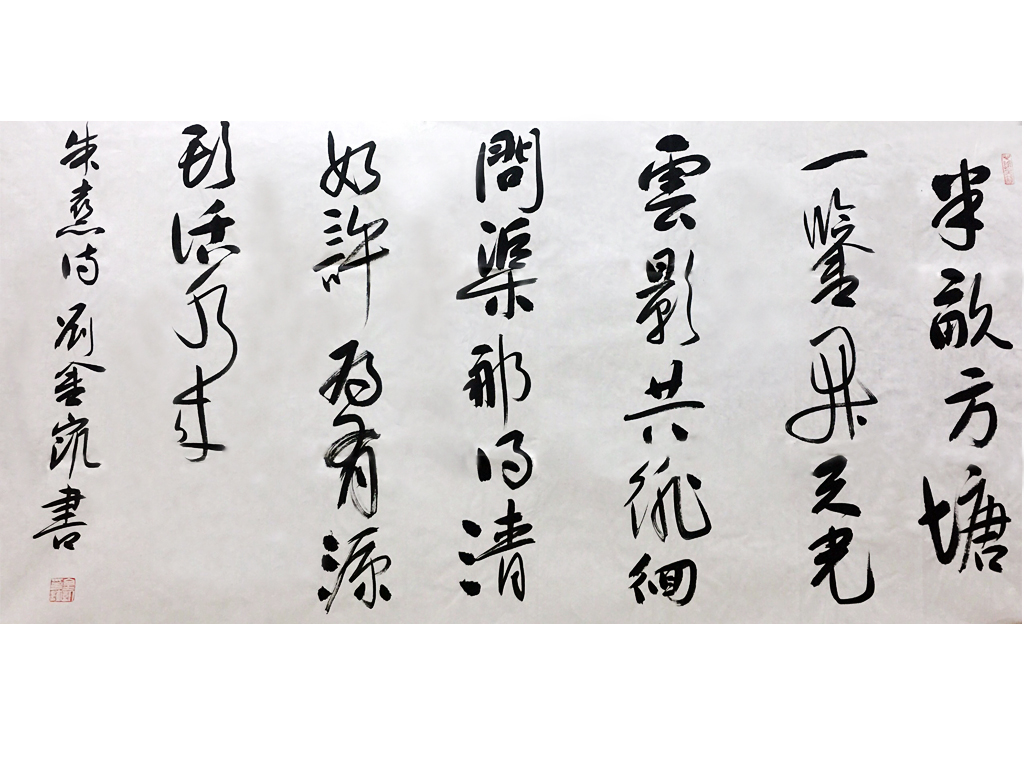 半畝方塘
一鑒開天光
雲影共徘徊
問渠那得清
如許為有源
頭活水來
朱熹詩 劉金凱書